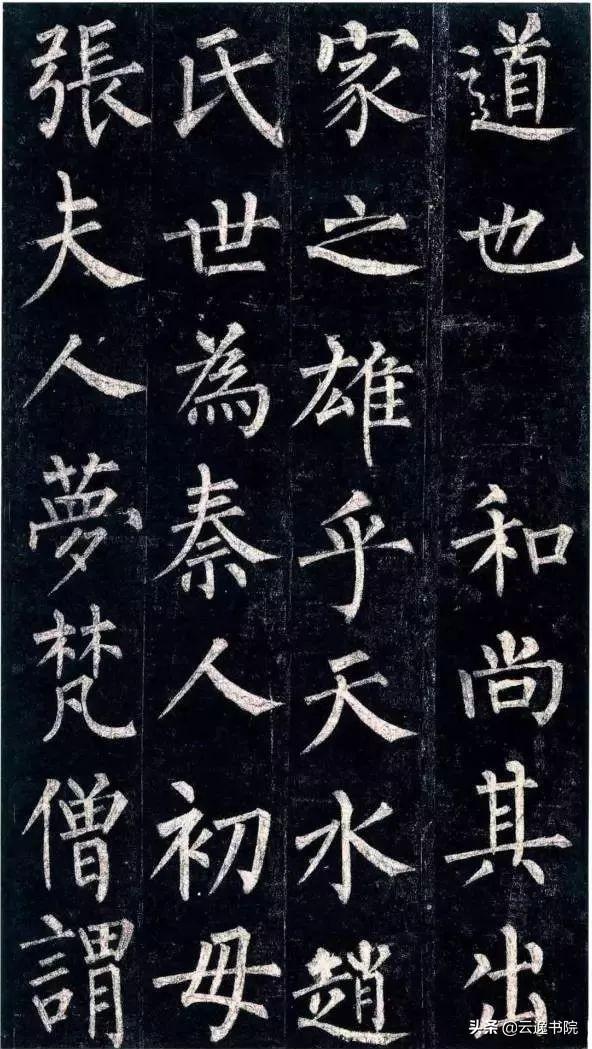 道也　和尚其出
家之雄乎天水趙
氏世為秦人初母
張夫人夢梵僧謂
头条@云逸书院